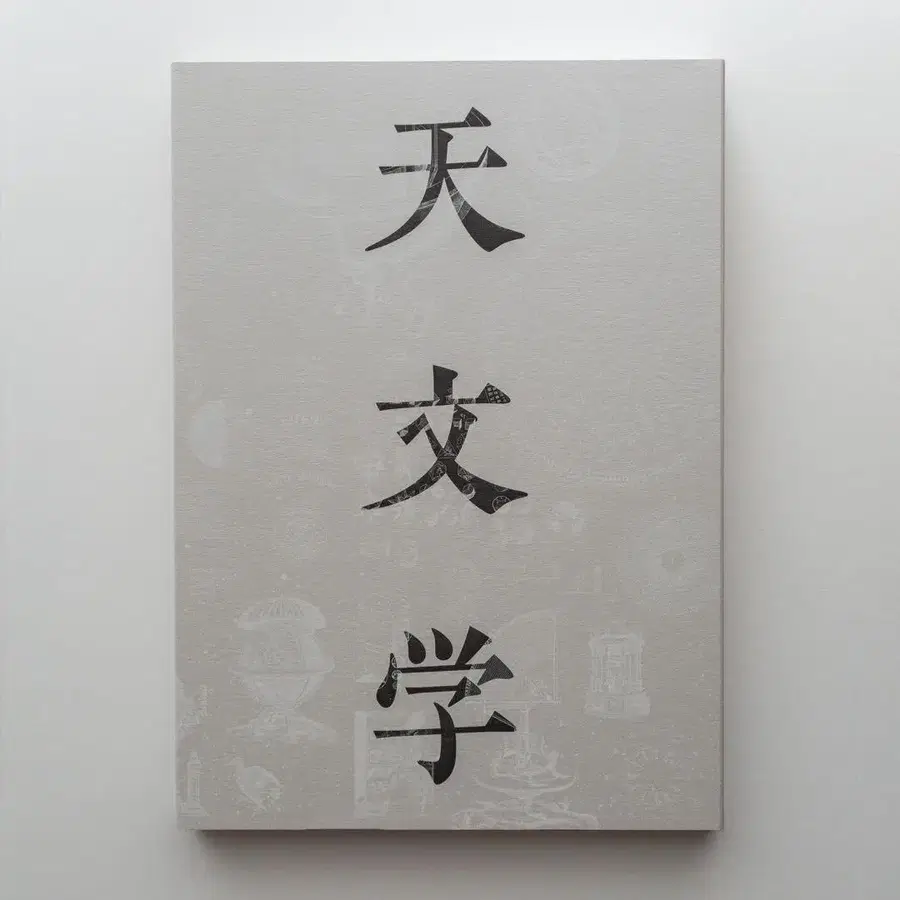 天文学